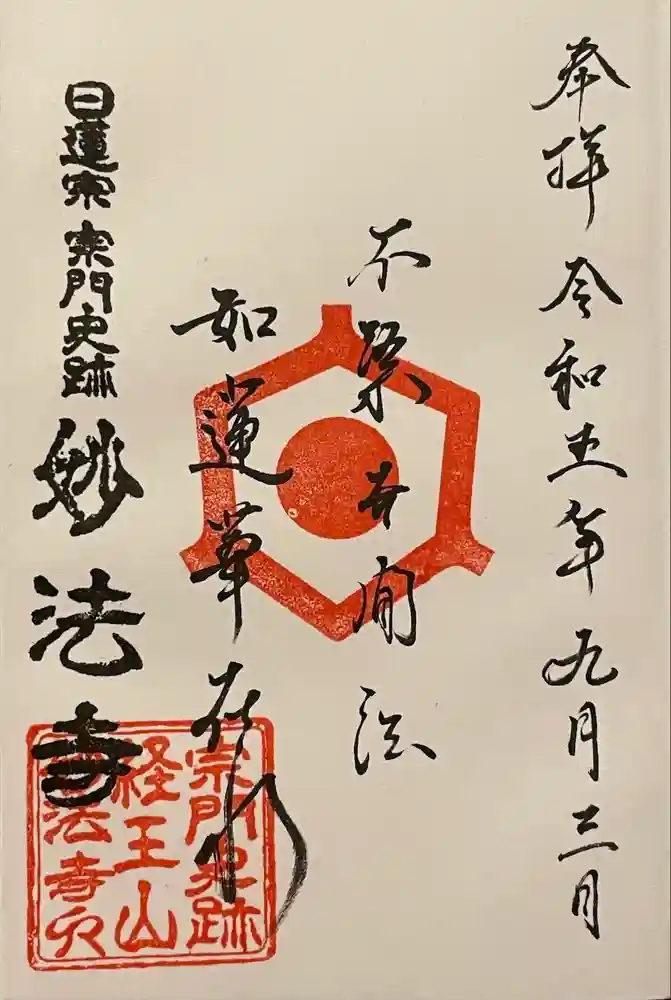 奉拝 令和五年九月三日
不染世間法
如蓮華在水
日蓮宗 宗門史跡 妙法寺
宗門史跡
経王山
妙法寺印